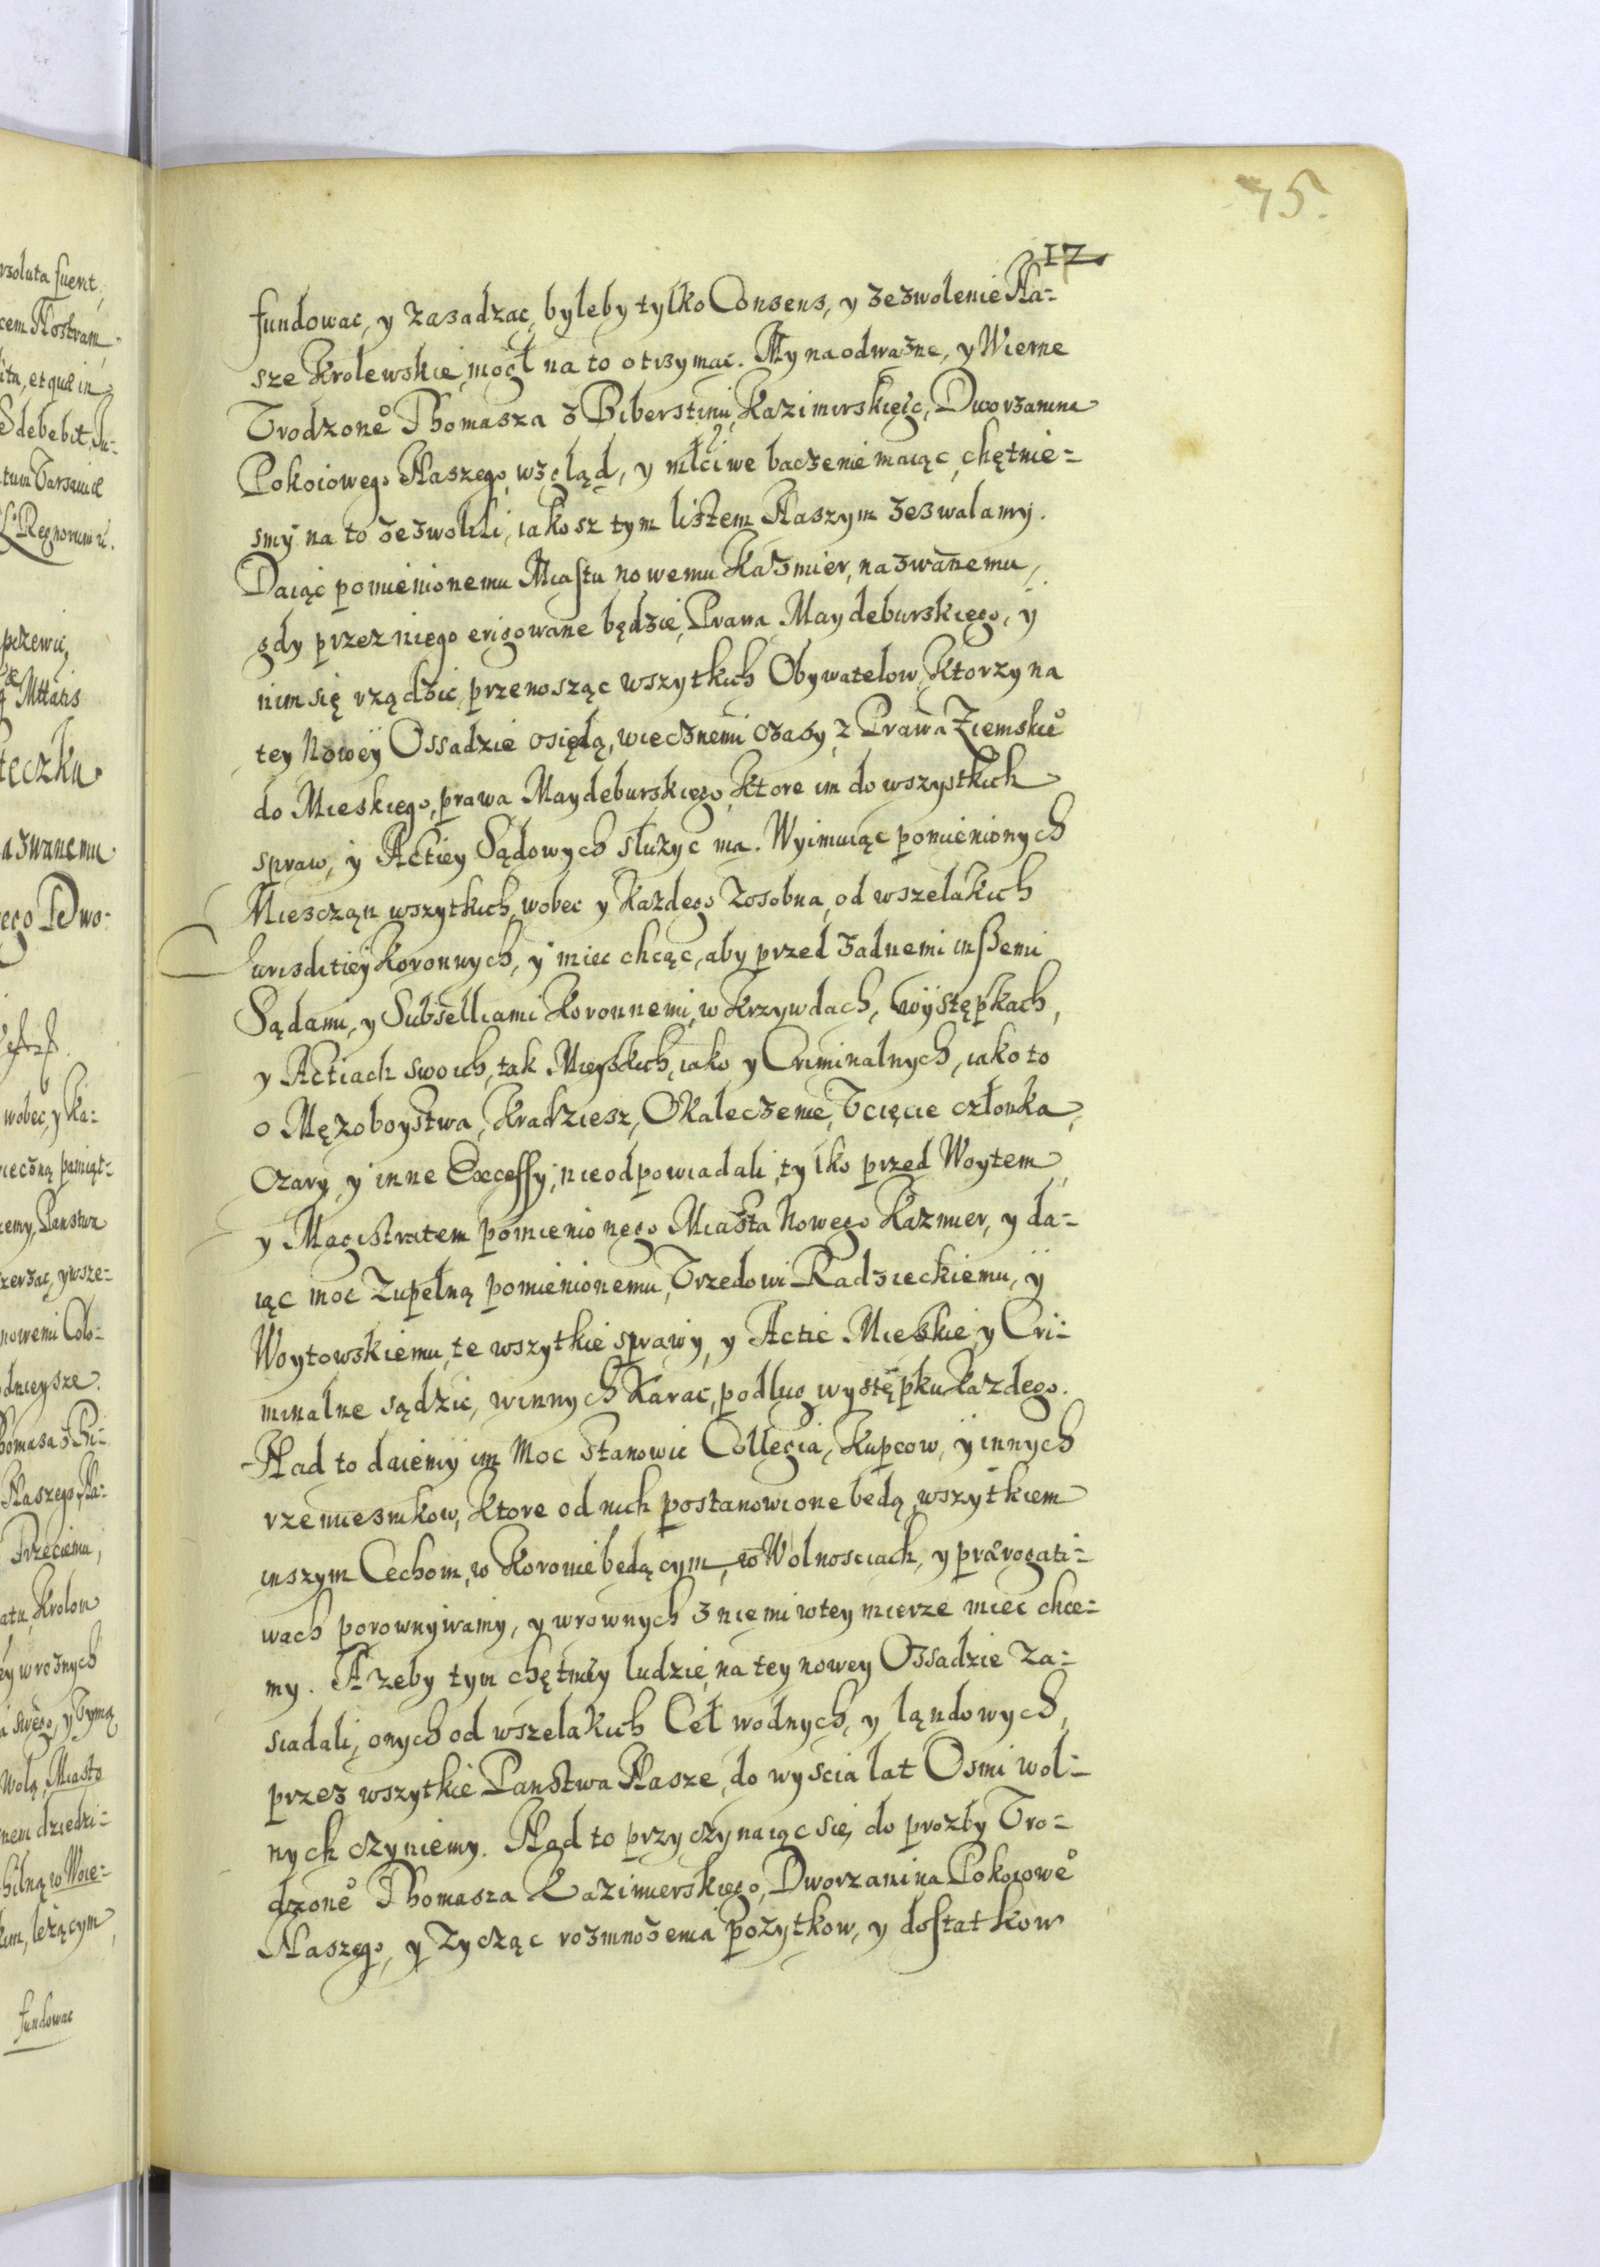 75.
17
fundowac, y zasadzac, byleby tylko Consens, y zezwolenie Na-
sze Krolewskie, mogł na to otrzymac. My na odwazne, y Wierne
Vrodzone° Thomasza z Biberstinu, Kazimirskie°, Dworzanina
Pokoiowego Naszego, wzgląd, y młciwe baczenie maiąc, chętnie-
smy na to zezwolili, iakosz tym listem Naszym zezwalamy.
Daiąc pomienionemu Miastu nowemu Kazmier, nazwanemu,
gdy przez niego erigowane będzie, Prawa Maydeburskiego, y
nim się rządzic, przenosząc wszytkich Obywatelow, Ktorzy na
tey Nowey Ossadzie osiędą, wiecznemi czasy, z Prawa Ziemskie°
do Mieskiego, prawa Maydeburskiego, Ktore im do wszystkich
spraw, y Actiey Sądowych słuzyc ma. Wyimuiąc pomienionych
Miesczan wszytkich, wobec y Kazdego zosobna, od wszelakich
Iurisditiey Koronnych, y miec chcąc, aby przed zadnemi inszemi
Sądami, y Subselliami Koronnemi, w Krzywdach, występkach,
y Actiach swoich, tak Mieyskich, iako y Criminalnych, iako to
o Męzoboystwa, Kradziesz, Okaleczenie, Vcięcie członka,
Czary, y inne Excessy, nieodpowiadali, tylko przed Woytem,
y Magistratem pomienionego Miasta Nowego Kazmier, y da-
iąc moc zupełną pomienionemu, Vrzedowi Radzieckiemu, y
Woytowskiemu, te wszytkie sprawy, y Actie Mieskie, y Cri-
minalne sądzic, winnych Karac, podlug występku Kazdego.
Nad to daiemy im Moc stanowic Collegia, Kupcow, y innych
rzemiesnikow, Ktore od nich postanowione będą, wszytkiem
inszym Cechom, w Koronie będącym, w Wolnosciach, y prærogati-
wach porownywamy, y wrownych z niemi w tey mierze miec chce-
my. A zeby tym chętniey ludzie, na tey nowey Ossadzie za-
siadali, onych od wszelakich Ceł wodnych, y lądowych,
przez wszytkie Panstwa Nasze, do wyscia lat Osmi wol-
nych czyniemy. Nad to przyczynaiąc sie, do prozby Vro-
dzone° Thomasza Kazimierskiego, Dworzanina Pokoiowe°
Naszego, y zycząc rozmnozenia pozytkow, y dostatkow